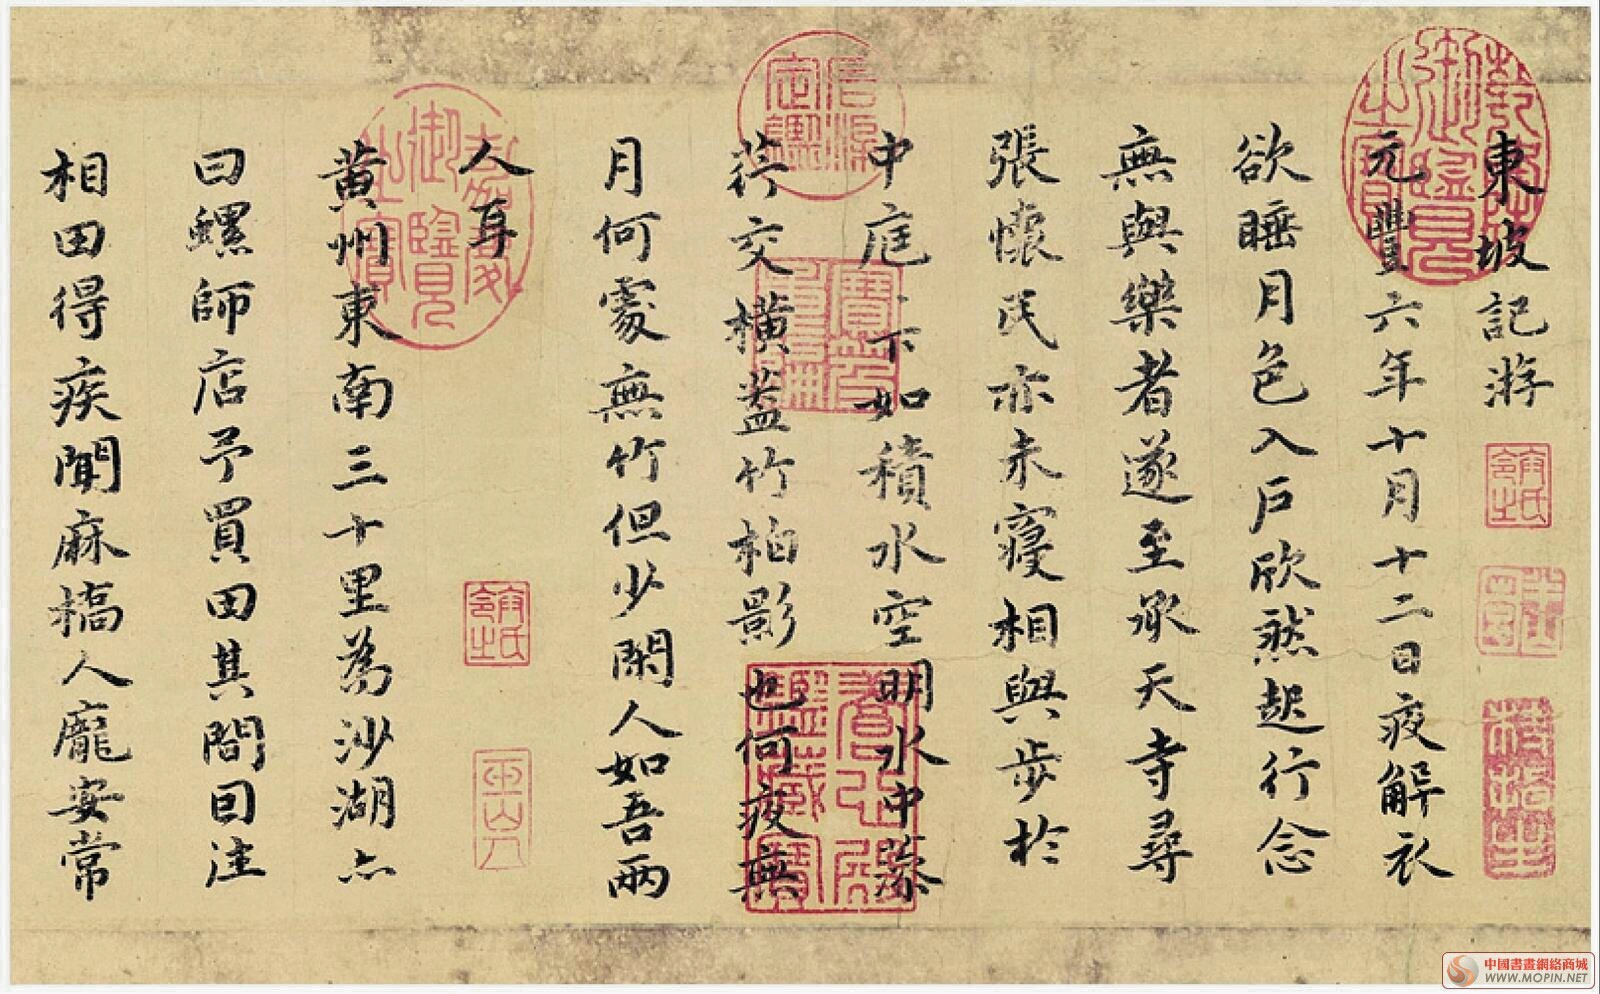 東坡記游
元豐六年十月十二日夜解衣
欲睡月色入戶欣然起行念
無與樂者遂至承天寺尋
張懷民亦未寢相與步於
中庭下如積水空明水中藻
荇交橫蓋竹柏影也何夜無
月何處無竹但少閑人如吾兩
人耳
黃州東南三十里為沙湖亦
曰螺師店予買田其間因往
相田得疾聞麻橋人龐安常
乾隆御覽之寶
嘉慶御覽之寶
石渠寶笈
中國書畫網絡商城
WWW.MOPIN.NET